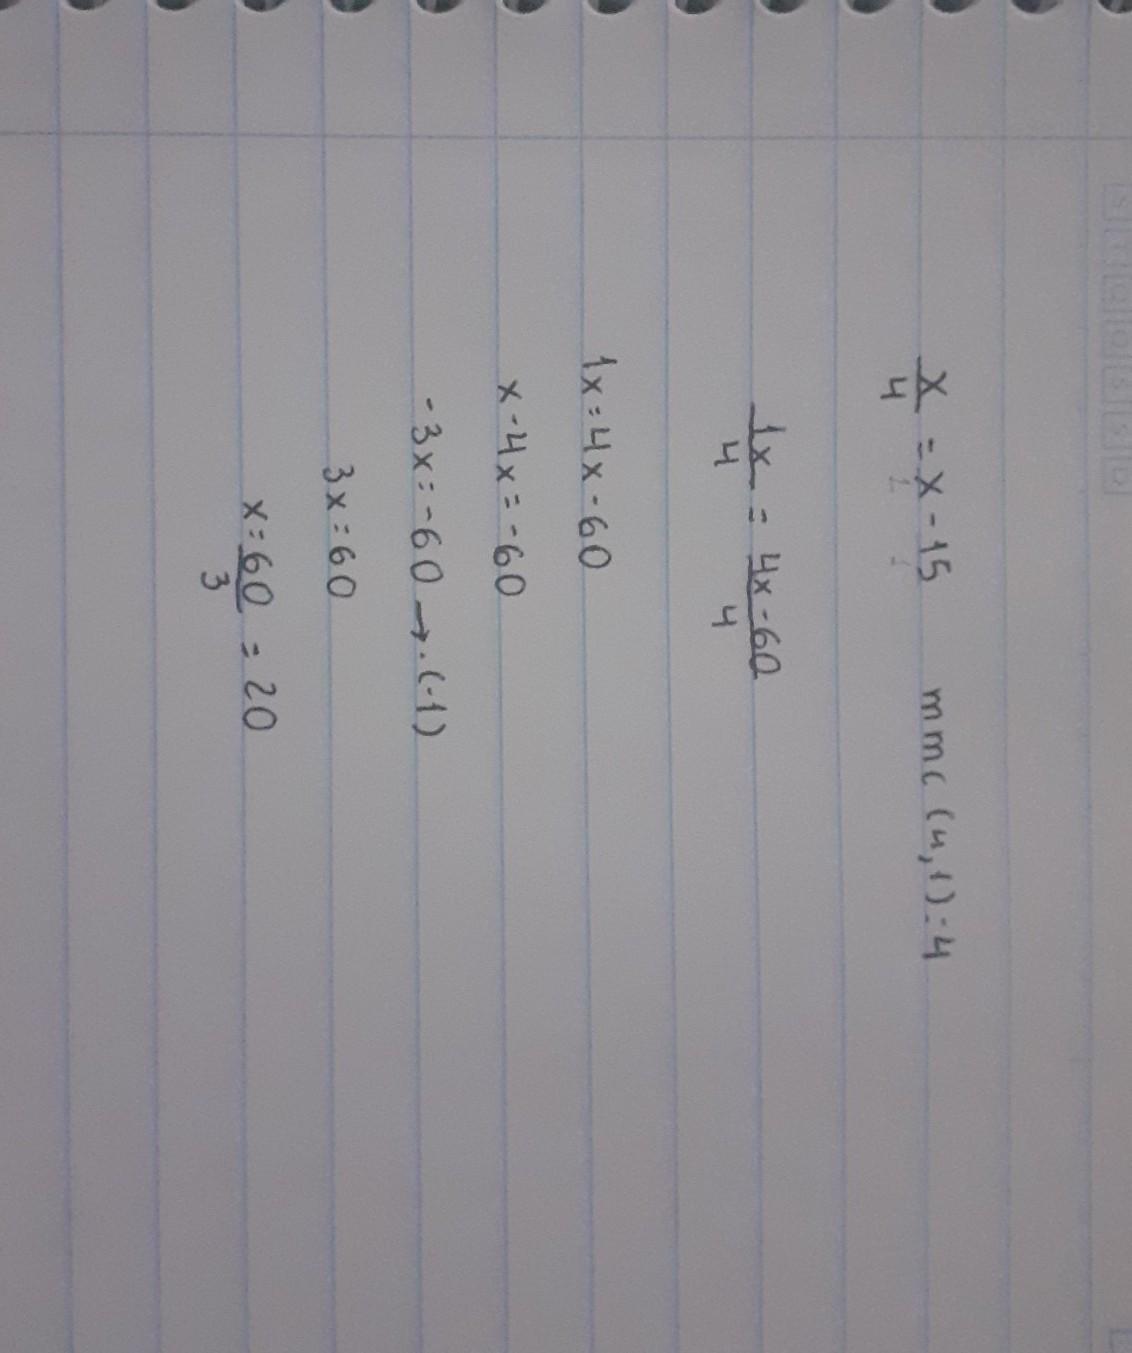 x/4 = x - 15 mmc (4,1) = 4
1x/4 = 4x - 60/4
1x = 4x - 60
x - 4x = -60
-3x = -60 → . (-1)
3x = 60
x = 60/3 = 20